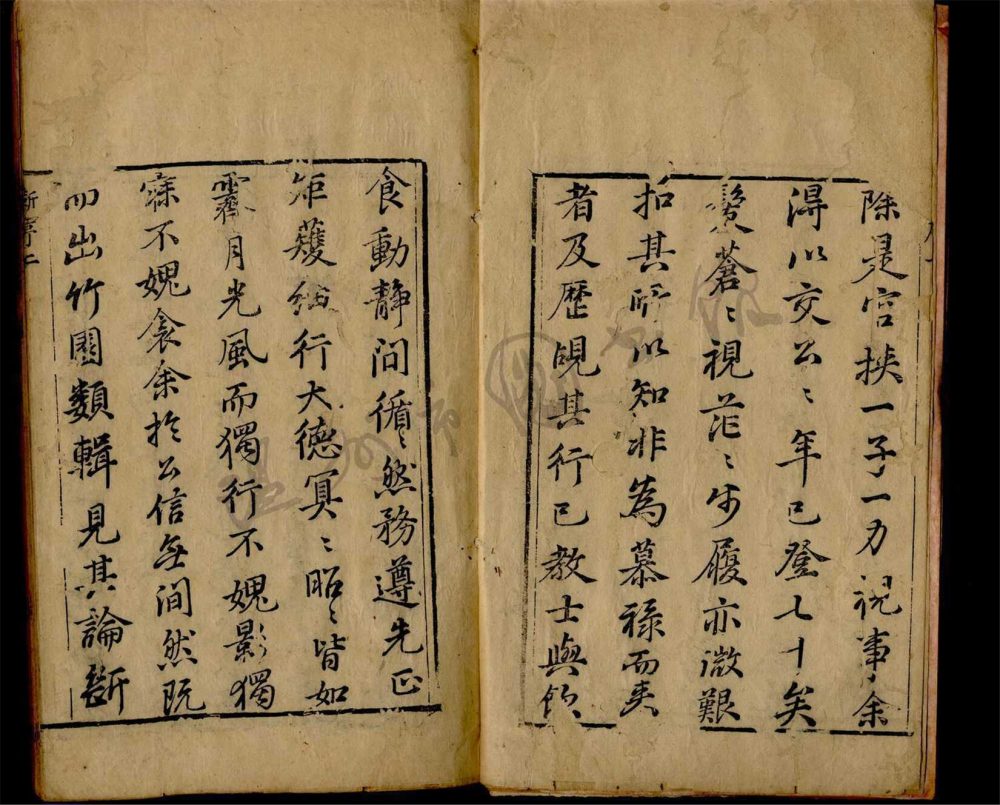 除是官挾一子一力視事余
得以交公〻年已登七十矣
鬢蒼〻視茫〻步履亦微艱
扣其所以知非為慕祿而来
者及歷覘其行已教士與飲
食動靜間循〻然務遵先正
矩矱細行大德冥〻昭〻皆如
霽月光風而獨行不媿影獨
寐不媿衾余於公信無間然既
而出竹園類輯見其論斷
新序二